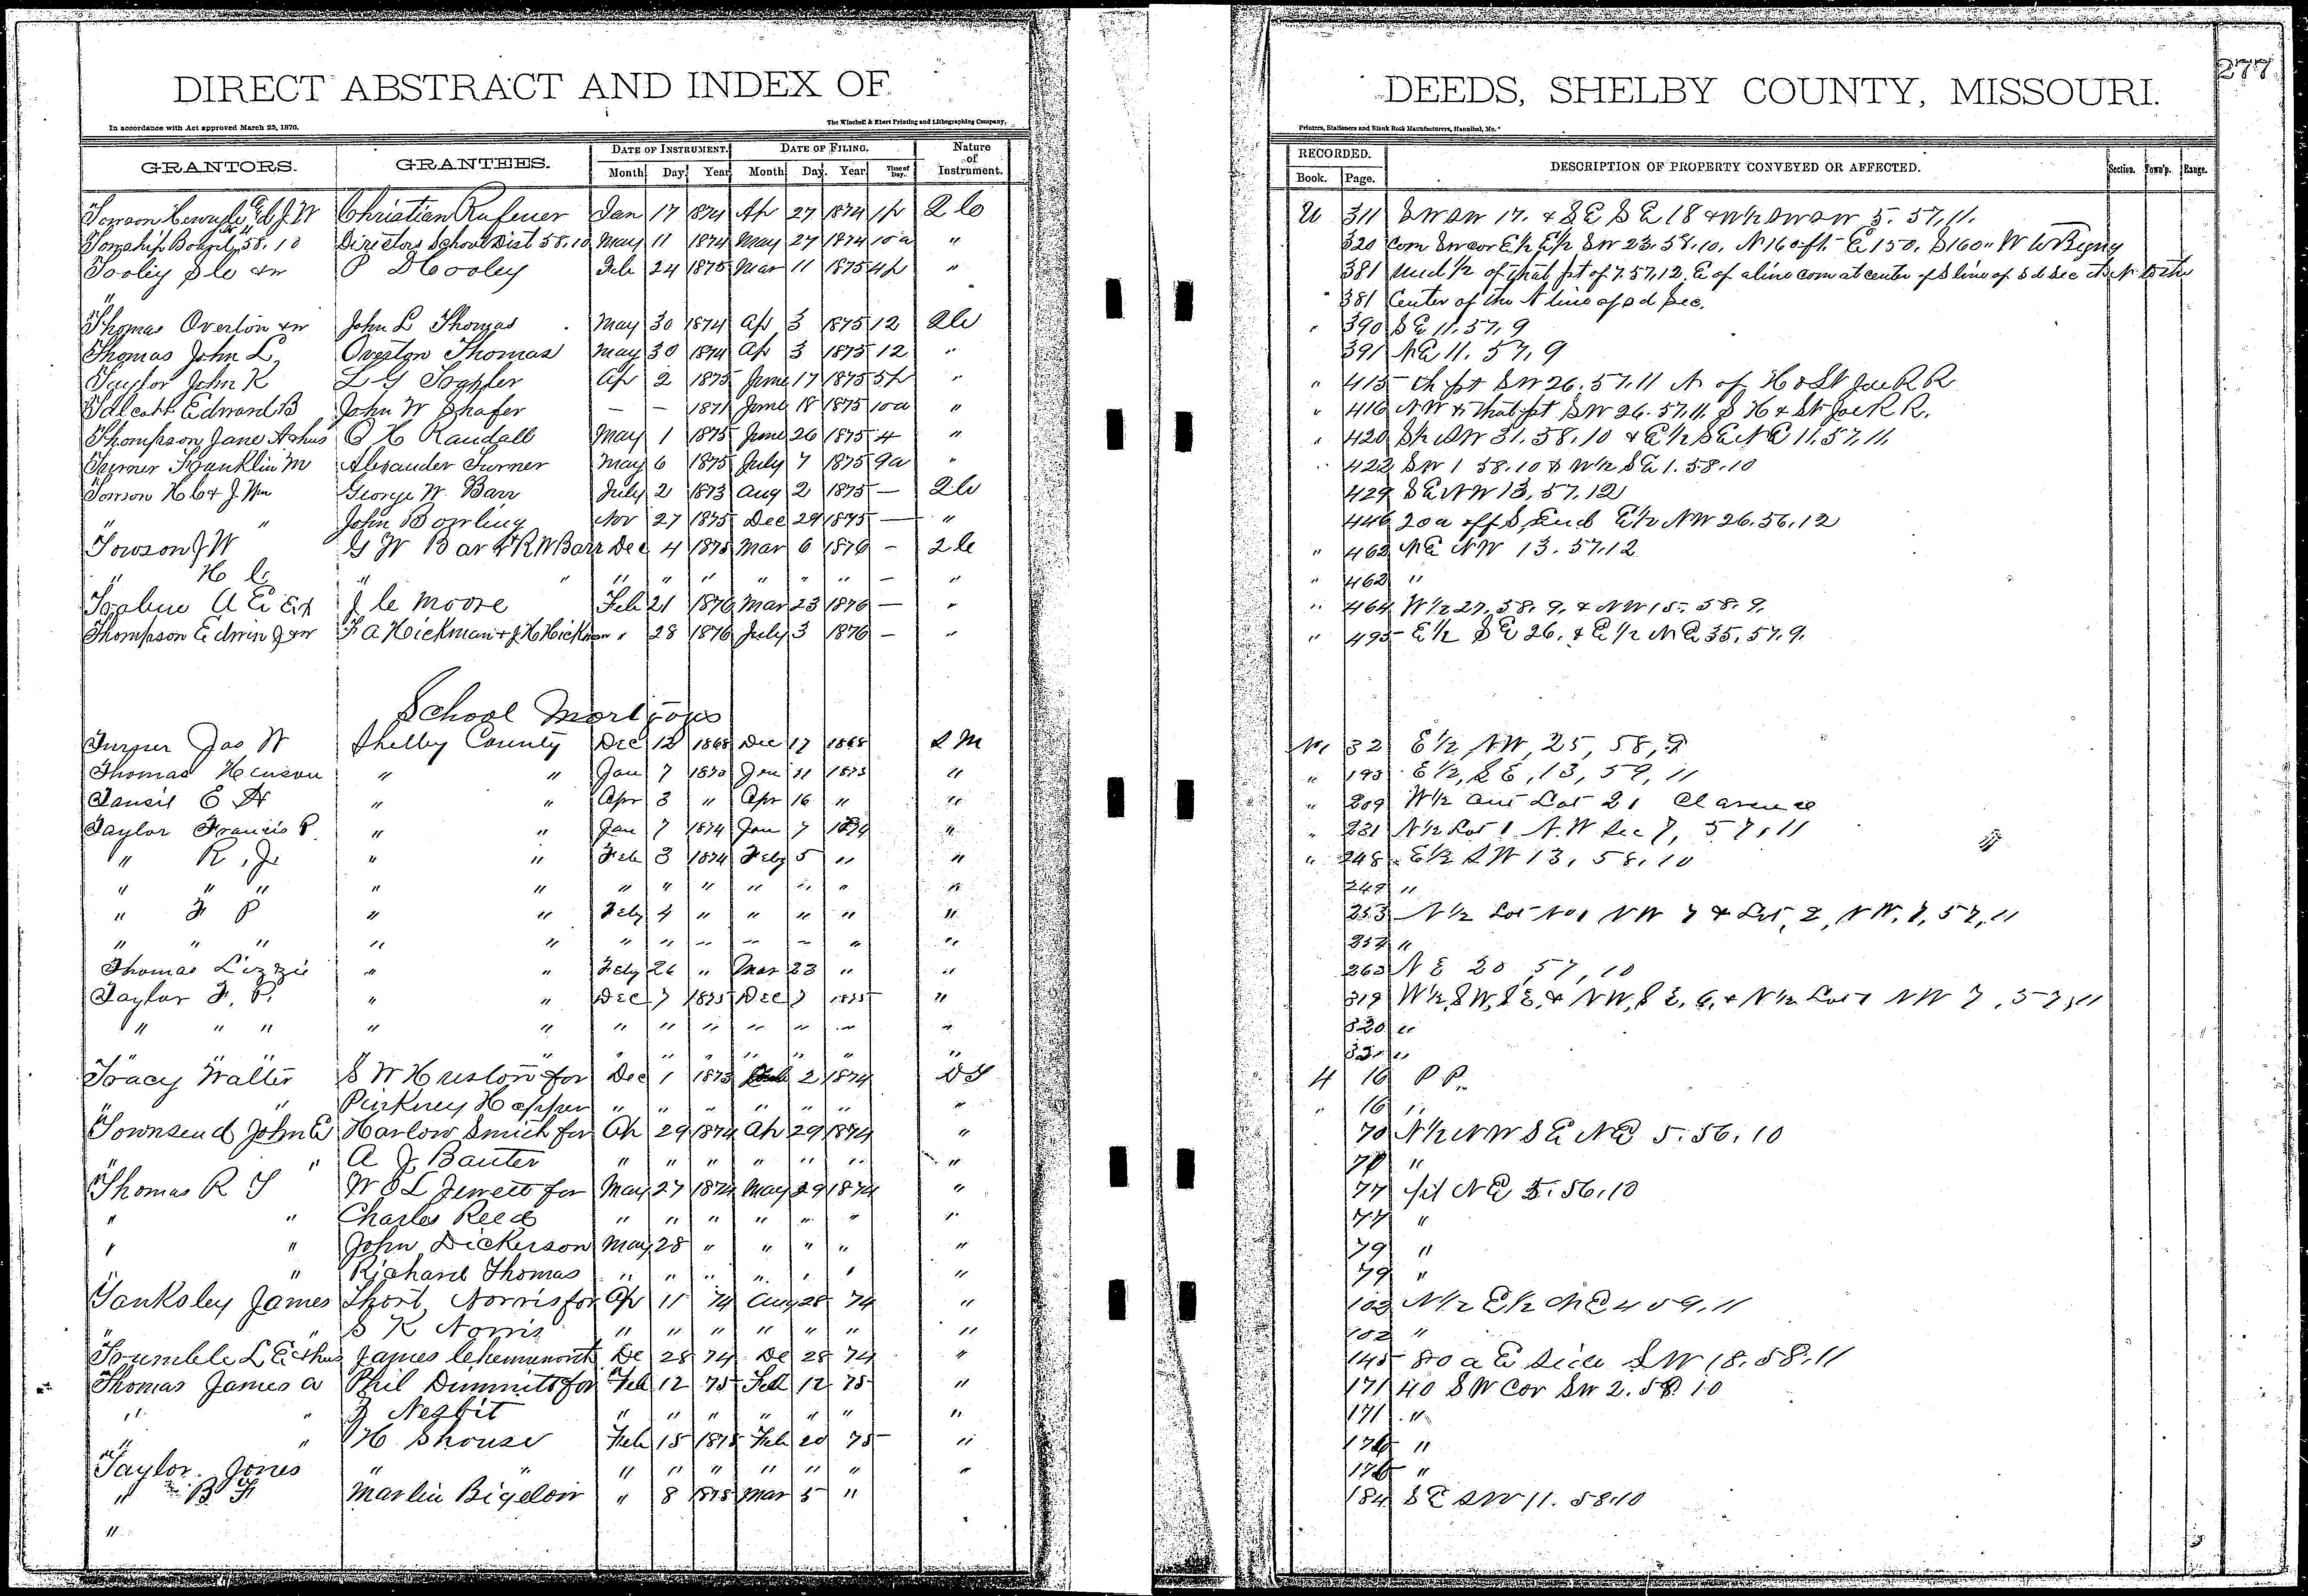 277
DIRECT ABSTRACT AND INDEX OF DEEDS, SHELBY COUNTY, MISSOURI.
In accordance with Act approved March 25, 1870. The Winchell & Ebert Printing and Lithographing Company, Printers, Stationers and Blank Book Manufacturers, Hannibal, Mo.
GRANTORS. GRANTEES. DATE OF INSTRUMENT. DATE OF FILING. Nature of Instrument. RECORDED. DESCRIPTION OF PROPERTY CONVEYED OR AFFECTED. Section. Town'p. Range.
Month Day Year Month Day. Year Time of Day. Book. Page.
Christian Rufener Jan 17 1874 Ap 27 1874 1p 311 SW SW 17. & SE SE 18 & W½ SW SW 5. 57. 11.
58. 10 Directors School Dist 58. 10 May 11 1874 May 27 1874 10a " 320 Com SW cor E½ E½ SW 23. 58. 10. N 160 ft E 150. S 160 " W to Begng
Tooley & wr 24 1875 Mar 11 1875 4p " 381 Und ½ of that pt of 7. 57. 12. E of a line com at center of S line of sd Sec
" 381 Center of the N line of sd Sec.
Thomas Overton & wr John L Thomas May 30 1874 Ap 3 1875 12 " 390 SE 11. 57. 9
Thomas John L Overton Thomas May 30 1874 Ap 3 1875 12 " 391 NE 11. 57. 9
Taylor John K L G Ap 2 1875 June 17 1875 5p " " 415 pt SW 26. 57. 11 N of H & St Joe R R
Talcott Edward B John W Shafer — — 1871 June 18 1875 10a " " 416 NW & that pt SW 26. 57. 11. S H & St Joe R R.
Thompson Jane & hus O H Randall May 1 1875 June 26 1875 4 " " 420 S½ SW 31. 58. 10 & E½ SE NE 11. 57. 11.
Turner Franklin M Alexander Turner May 6 1875 July 7 1875 9a " " 422 SW 1 58. 10 & W½ SE 1. 58. 10
Towson H C & J Wm George W. Barr July 2 1873 Aug 2 1875 — 429 SE NW 13. 57. 12
" " John Bowling Nov 27 1875 Dec 29 1875 — " 446 20a off S. End E½ NW 26. 56. 12
Towson J W G W Bar & R W Barr Dec 4 1875 Mar 6 1876 — " 462 NE NW 13. 57. 12
" H C " " " " " " " " — " " 462 "
A E J C Moore Feb 21 1876 Mar 23 1876 — " " 464 W½ 27. 58. 9. & NW 15. 58. 9.
Thompson Edwin J & wr F A Hickman & J H Hickman " 28 1876 July 3 1876 — " " 495 E½ SE 26. & E½ NE 35. 57. 9.
School Mortgages
Turner Jas W Shelby County Dec 12 1868 Dec 17 1868 S M 32 E½ NW 25, 58, 9
Thomas Henson " " Jan 7 1873 Jan 11 1873 " " 193 E½, SE, 13, 59, 11
Tansil E " " Apr 3 " Apr 16 " " " 209 W½ Out Lot 21 Clarence
Taylor Francis P. " " Jan 7 1874 Jan 7 1874 " " 231 N½ Lot 1 N.W Sec 7, 57, 11
" R. J. " " Feb 3 1874 Feby 5 " " " 248 E½ SW 13, 58, 10
" " " " " " " " " " " " 249 "
" F P " " Feby 4 " " " " " 253 N½ Lot No 1 NW 7 & Lot, 2, NW, 7, 57, 11
" " " " " " " " " " " " "
Thomas Lizzie " " Feby 26 " Mar 23 " " 263 NE 20, 57, 10
Taylor F. P. " " Dec 7 1875 Dec 7 1875 " 319 W½, SW, SE, & NW, SE, 6, & N½ Lot 1 NW 7, 57, 11
" " " " " " " " " " " " 320 "
" " " " " " " " " 321 "
Tracy Walter S W Huston for Dec 1 1873 2 1874 D T 4 16 P P.
" " Pinkney " " " " " " " " 16 "
Townsend John E Harlow Smith for Ap 29 1874 Ap 29 1874 " 70 N½ NW SE NE 5. 56. 10
" " A J Bauter " " " " " " " 70 "
Thomas R T W O L Jewett for May 27 1874 May 29 1874 " 77 pt NE 5. 56. 10
" " Charles Reed " " " " " " " 77 "
" " John Dickerson May 28 " " " " " 79 "
" " Richard Thomas " " " " " " " 79 "
Tanksley James Thost Norris for Ap 11 74 Aug 28 74 " 102 N½ E½ NE 4 59. 11
" " S K Norris " " " " " " " 102 "
Trumble L E & hus James De 28 74 De 28 74 " 145 80 a E side SW 18. 58. 11
Thomas James A Phil Dimmitt for Feb 12 75 Feb 12 75 " 171 40 SW Cor SW 2. 58. 10
" " Z Nesbit " " " " " " " 171 "
" " H. Shouse Feb 15 1875 Feb 20 75 " 176 "
Taylor Jones " " " " " " " " " 176 "
" B F Marlin Bigelow " 8 1875 Mar 5 " 184 SE SW 11. 58. 10
"